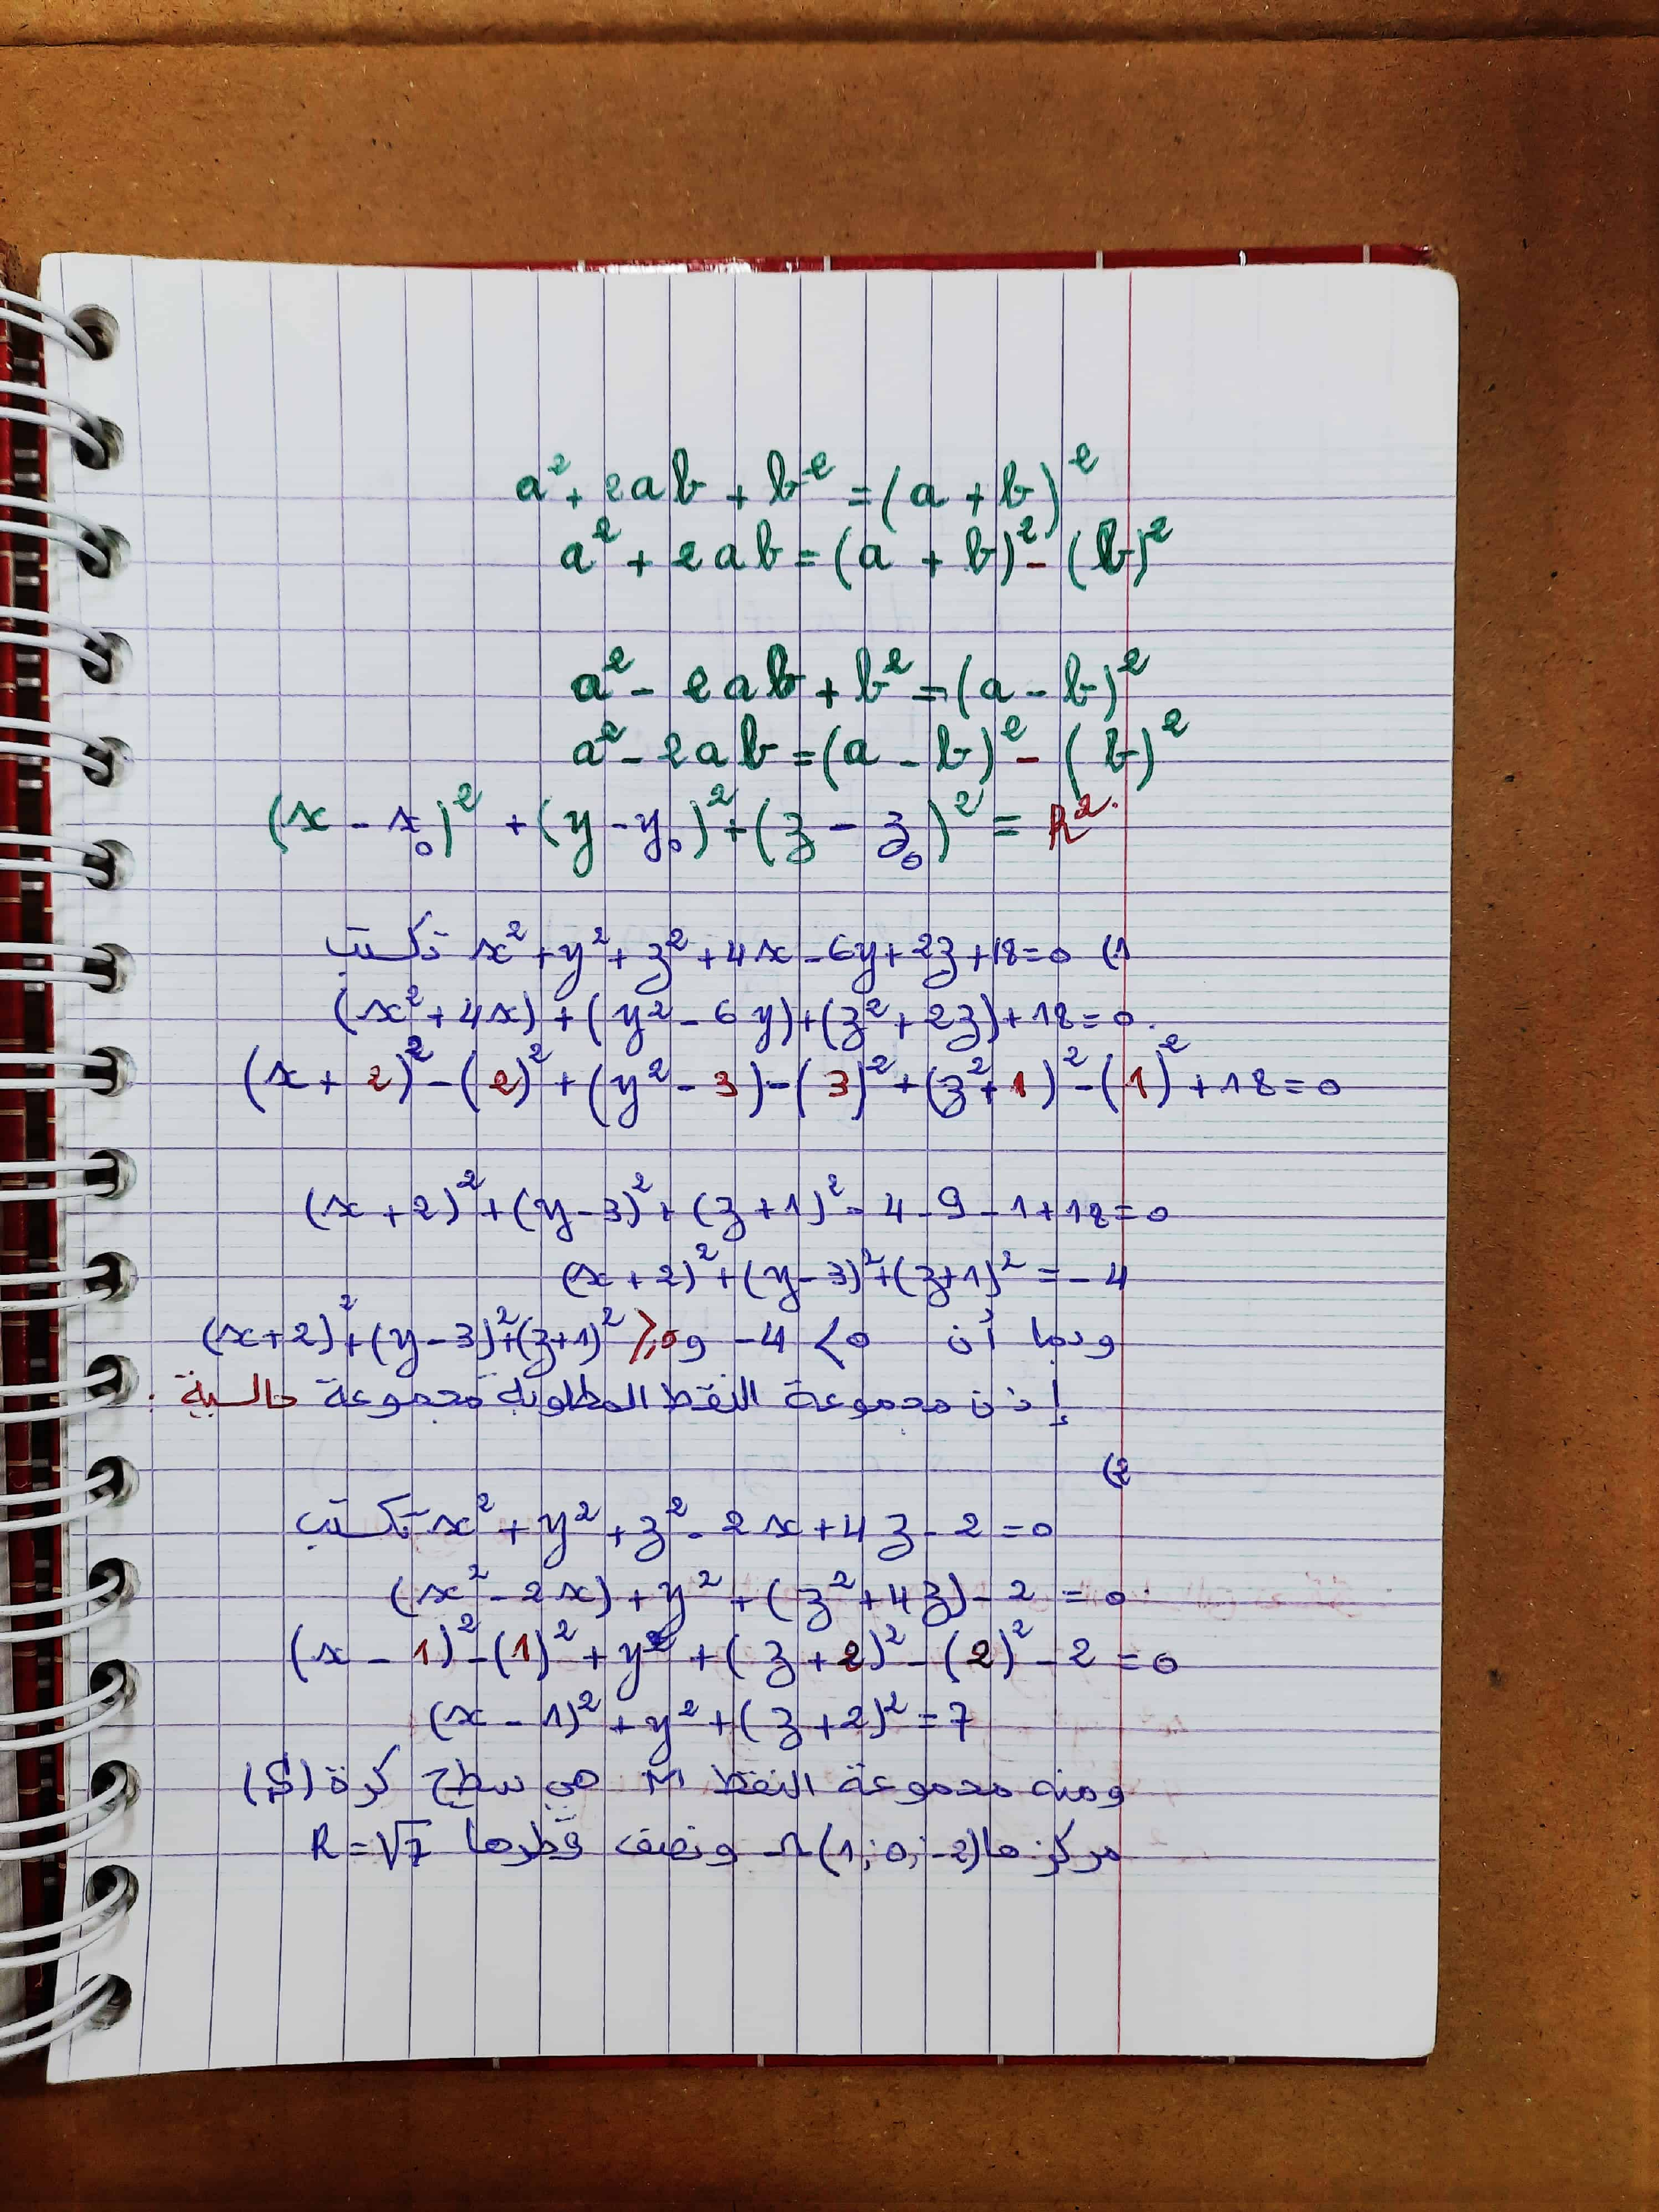 a² + 2ab + b² = (a + b)²
a² + 2ab = (a + b)² - (b)²
a² - 2ab + b² = (a - b)²
a² - 2ab = (a - b)² - (b)²
(x - x₀)² + (y - y₀)² + (z - z₀)² = R²
1) x² + y² + z² + 4x - 6y + 2z + 18 = 0 تكتب
(x² + 4x) + (y² - 6y) + (z² + 2z) + 18 = 0
(x + 2)² - (2)² + (y² - 3) - (3)² + (z² + 1)² - (1)² + 18 = 0
(x + 2)² + (y - 3)² + (z + 1)² - 4 - 9 - 1 + 18 = 0
(x + 2)² + (y - 3)² + (z + 1)² = -4
وبما أن -4 < 0 و (x+2)² + (y-3)² + (z+1)² ⩾ 0
إذن مجموعة النقط المطلوبة مجموعة خالية .
2)
x² + y² + z² - 2x + 4z - 2 = 0 تكتب
(x² - 2x) + y² + (z² + 4z) - 2 = 0
(x - 1)² - (1)² + y² + (z + 2)² - (2)² - 2 = 0
(x - 1)² + y² + (z + 2)² = 7
ومنه مجموعة النقط M هي سطح كرة (S)
مركزها Ω(1; 0; -2) ونصف قطرها R = √7